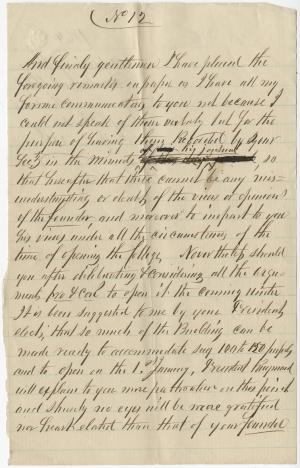 (No 12
And finaly gentlemen I have placed the
foregoing remarks on paper as I have all my
former communications to you not because I
could not speak of them verbaly but for the
purpose of having them Recorded by your
Secy in the Minuts so
that hereafter that there cannot be any mis-
understanding or doubt of the views & opinions
of the founder and moreover to impart to you
his views under all the circumstances of the
time of opening the College. Nevertheless should
you after deliberating & considering all the argu-
ments pro & con to open it the coming winter
It has been suggested to me by your President
elect, that so much of the Building can be
made ready to accommodate say 100 to 150 pupils
and to open on the 1st January, President Raymond
will explain to you more particular on this point
and shurely no eyes will be more gratified
nor heart elated than that of your founder